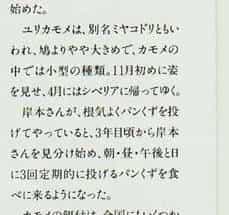 始めた。
ユリカモメは、別名ミヤコドリともい
われ、鳩よりやや大きめで、カモメの
中では小型の種類。11月初めに姿
を見せ、4月にはシベリアに帰ってゆく。
岸本さんが、根気よくパンくずを投
げてやっていると、3年目頃から岸本
さんを見分け始め、朝・昼・午後と日
に3回定期的に投げるパンくずを食
べに来るようになった。
カモメの餌付は、全国にもいくつか